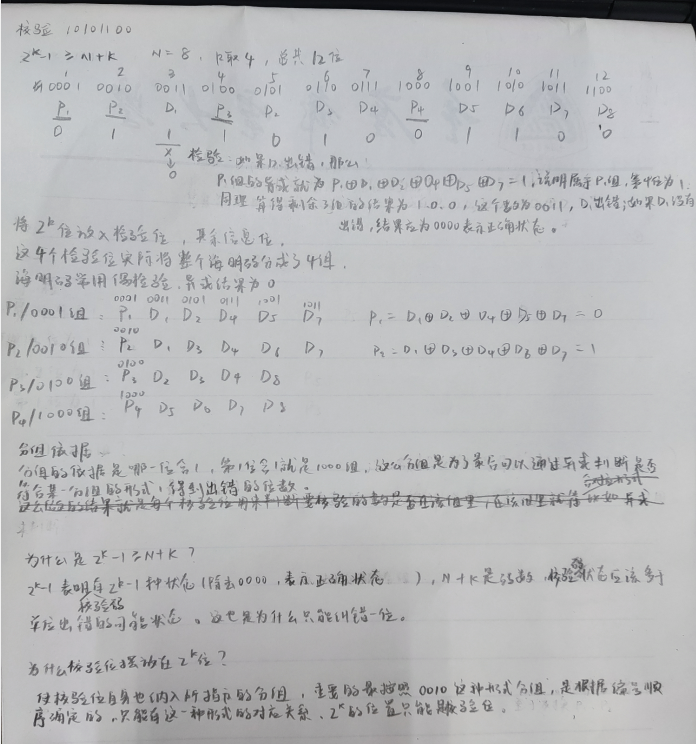 校验 10101100
2^k-1 ≥ N+K N=8, K取4, 总共12位
1 2 3 4 5 6 7 8 9 10 11 12
0001 0010 0011 0100 0101 0110 0111 1000 1001 1010 1011 1100
P1 P2 D1 P3 D2 D3 D4 P4 D5 D6 D7 D8
0 1 1 1 0 1 0 0 1 1 0 0
0
检验:如果D1出错,那么
P1组的异或就为P1⊕D1⊕D2⊕D4⊕D5⊕D7=1,说明属于P1组,第4位为1.
同理算得剩余3位的结果为1.0.0,这个数为0011,D1出错;如果D1没有
出错,结果应为0000表示正确状态。
将2^k位放入检验位,其余信息位.
这4个检验位实际将整个海明码分成了4组.
海明码采用偶检验.异或结果为0
0001 0011 0101 0111 1001 1011
P1/0001组: P1 D1 D2 D4 D5 D7 P1=D1⊕D2⊕D4⊕D5⊕D7=0
0010
P2/0010组: P2 D1 D3 D4 D6 D7 P2=D1⊕D3⊕D4⊕D6⊕D7=1
0100
P3/0100组: P3 D2 D3 D4 D8
1000
P4/1000组: P4 D5 D6 D7 D8
分组依据
分组的依据是哪一位含1,第1位含1就是1000组,这么分组是为了最后可以通过异或判断是否
符合某一分组的形式,得到出错的位数。
为什么是2^k-1≥N+K?
2^k-1表明有2^k-1种状态(除去0000,表示正确状态),N+K是码数,校验状态应该多于
校验码
单位出错的可能状态。这也是为什么只能纠错一位。
为什么校验位摆放在2^k位?
使校验位自身也纳入所指示的分组,重要的是按照0010这种形式分组,是根据编号顺
序确定的,只能有这一种形式的对应关系.2^k的位置只能是校验位。